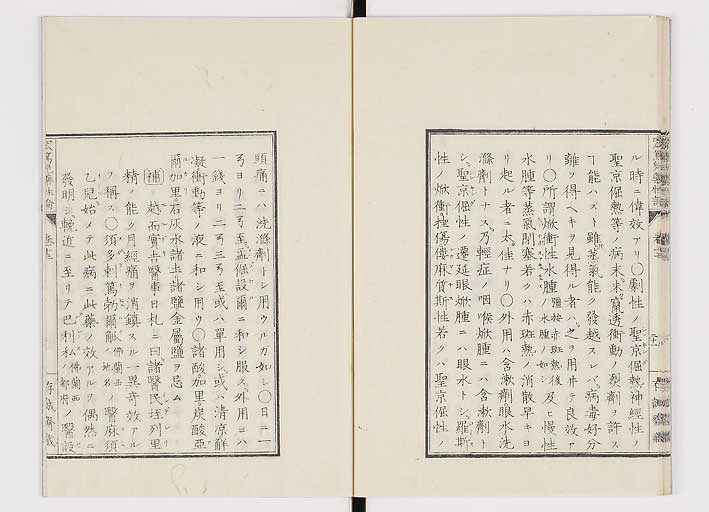 ル時ニ偉效アリ〇劇性ノ聖京倔熱神經性ノ
聖京倔熱等ノ病末來竄透衝動ノ烈劑ヲ許ス
ヿ能ハズト雖蒸氣能ク發越スレバ病毒好分
離ヲ得ヘキヲ見得ル者ハ之ヲ用井テ良效ア
リ〇所謂焮衝性水腫猩挨赤斑熱後ノ水腫ノ如シ及ヒ慢性
水腫等蒸氣閉塞若クハ赤斑熱ノ消散早キヨ
リ起ル者ニ太佳ナリ〇外用ハ含漱劑眼水洗
滌劑トナス乃輕症ノ咽喉焮腫ニハ含漱劑ト
シ聖京倔性ノ遷延眼焮腫ニハ眼水トシ羅斯
性ノ焮衝撞傷僂麻質斯性若クハ聖京倔性ノ
頭痛ニハ洗滌劑トシ用ウルガ如シ〇日ニ一
弓ヨリ二弓至盃倔設爾ニ和シ服ス外用ニハ
一錢ヨリ二弓三弓至或ハ單用シ或ハ清凉解
凝衝動等ノ液ニ和シ用ウ〇諸酸加里炭酸亞
爾加里石灰水諸土諸鹽金屬鹽ヲ忌ム
補越而實士醫事日札ニ曰諸醫民垤列里
精ノ能ク月經痛ヲ消鎮スル一異奇效アル
ヲ稱ス〇須多刺篤勃爾解佛蘭西ノ地名ノ醫麻須
乙兒始メテ此病ニ此藥ノ效アルヲ偶然ニ
發明シ輓近ニ至リテ巴利私佛蘭西ノ都府ノ醫設
卷十三
存誠齋藏